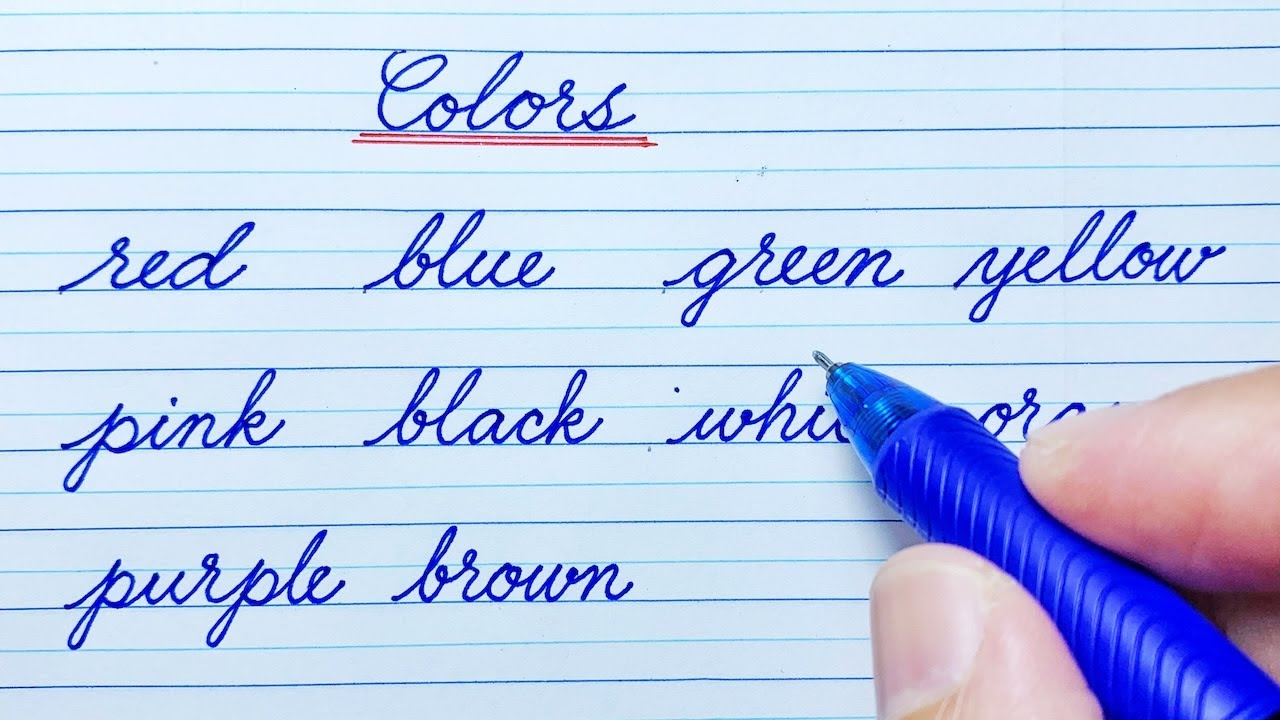 Colors
red blue green yellow
pink black
purple brown